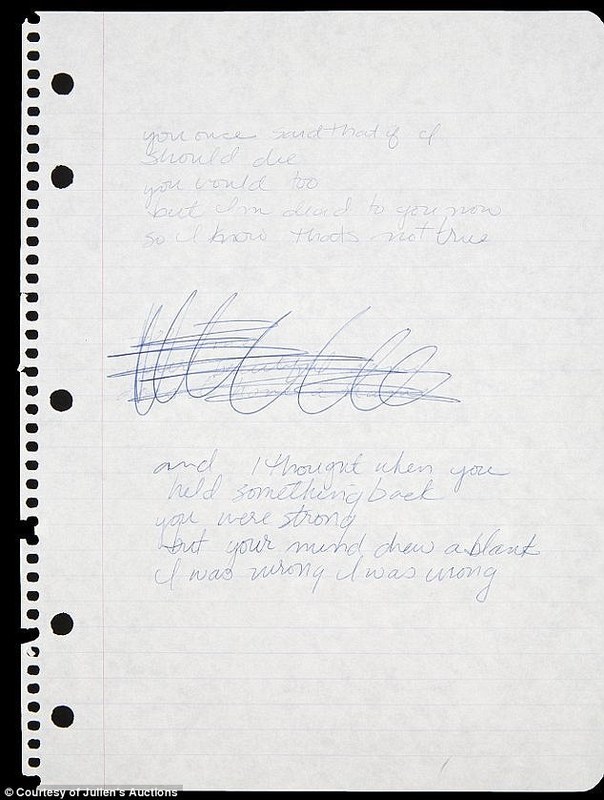 you once said that if I
should die
you would too
but I'm dead to you now
so I know thats not true
and I thought when you
held something back
you were strong
but your mind drew a blank
I was wrong I was wrong
© Courtesy of Julien's Auctions